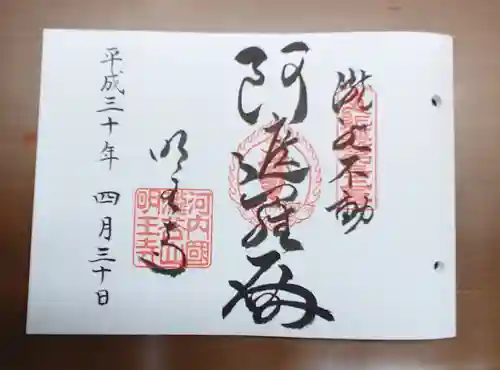 瀧谷不動
阿遮羅殿
明王寺
河内國
瀧谷山
明王寺
平成三十年 四月三十日